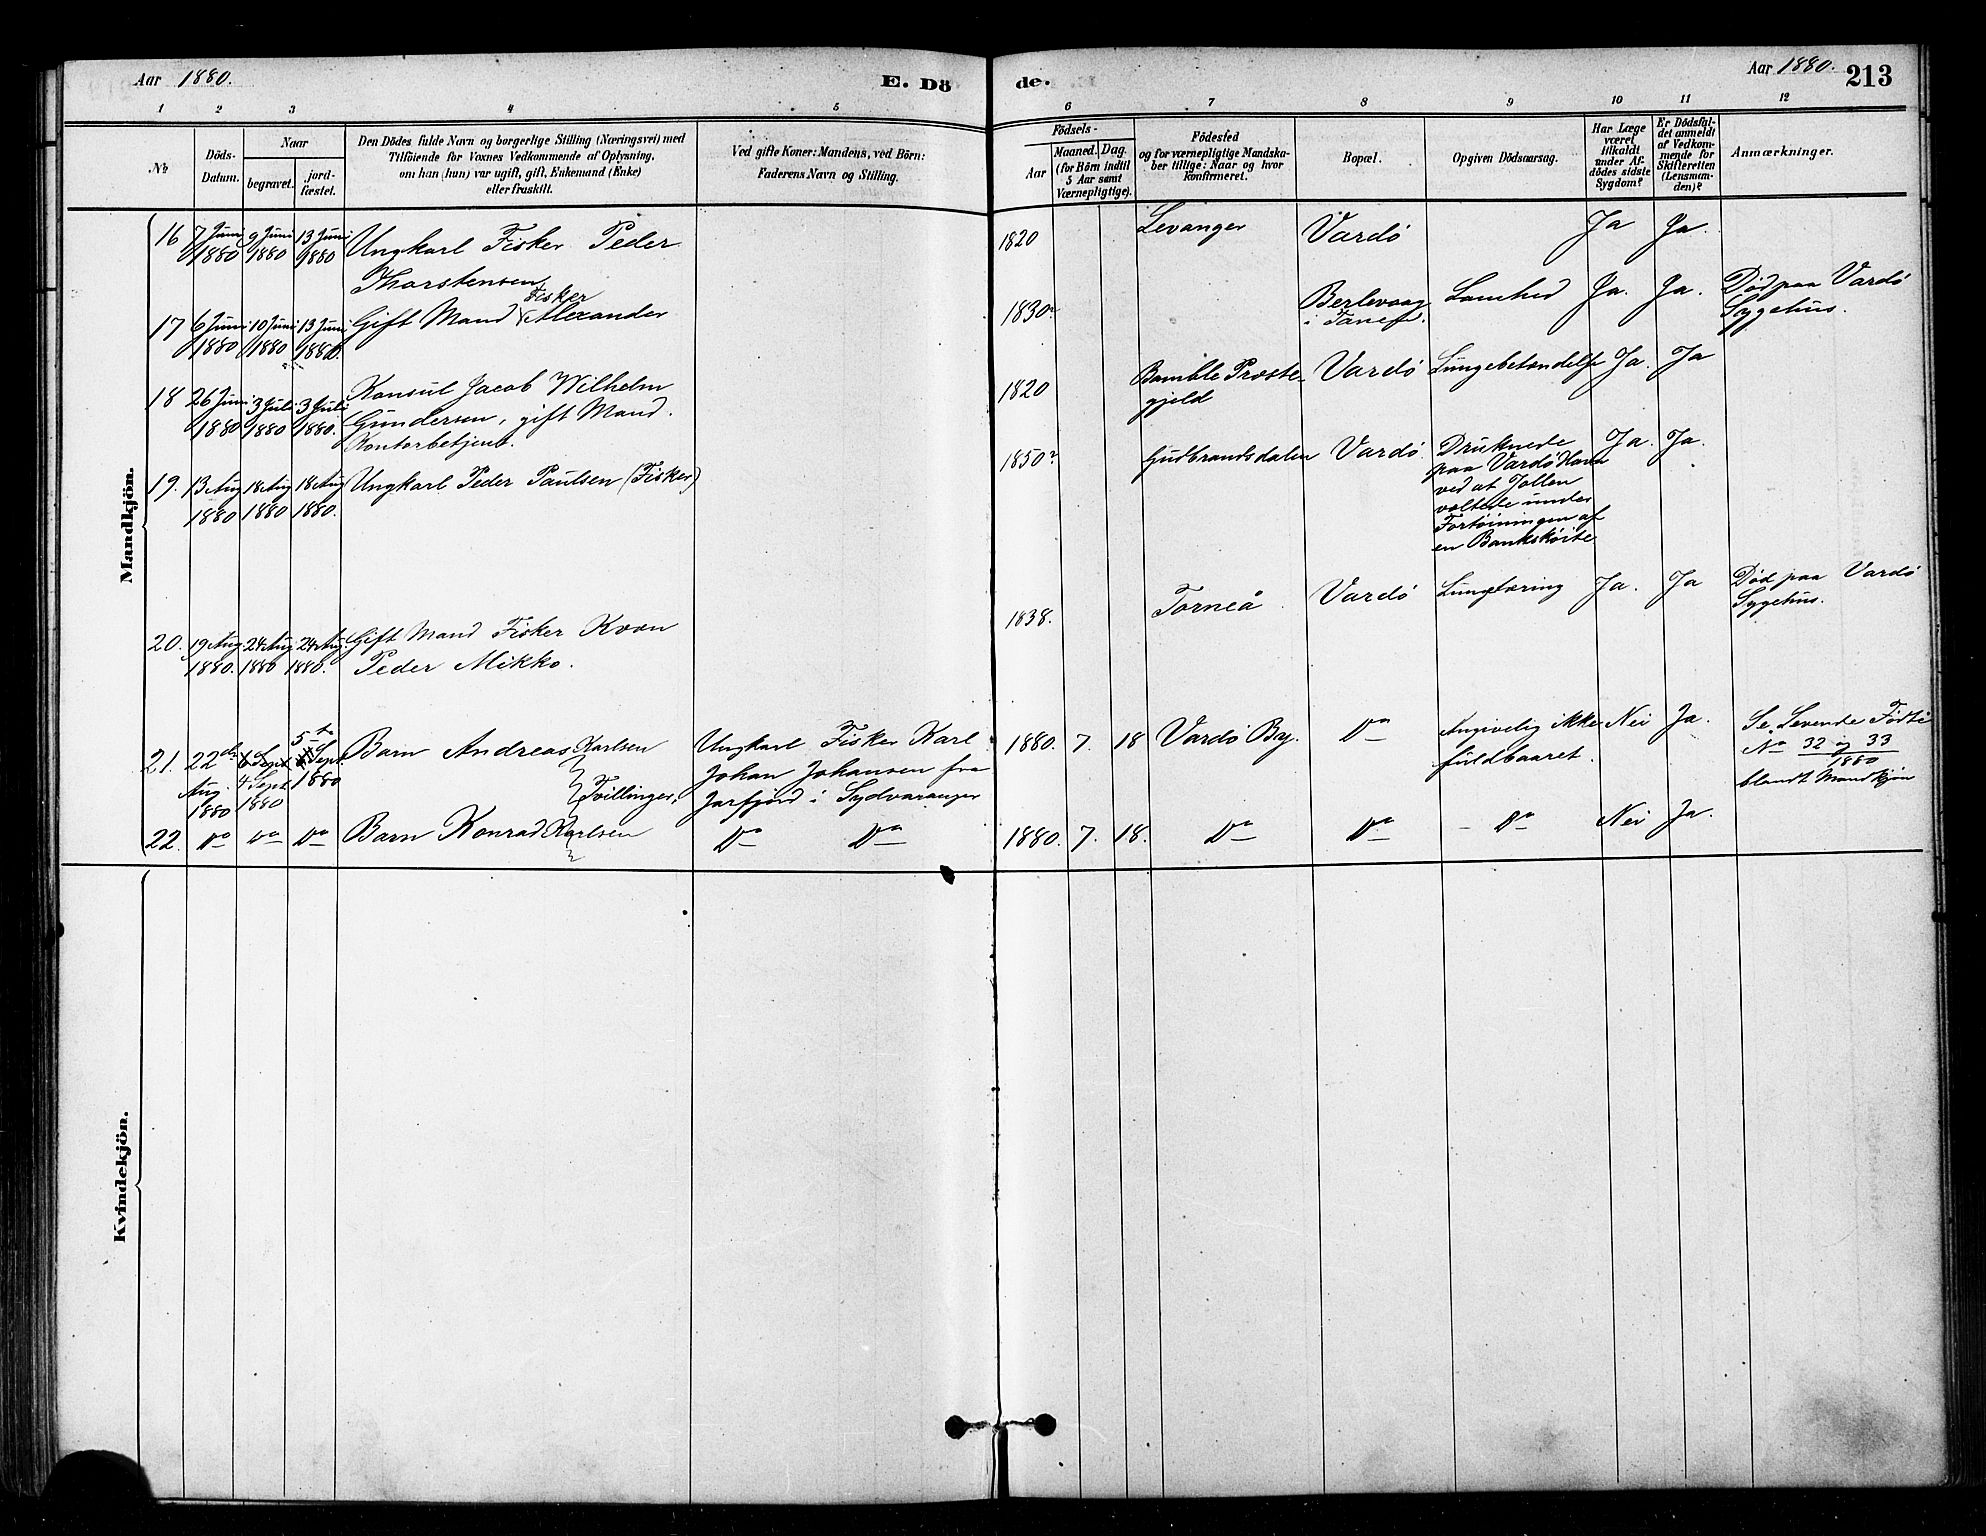 Aar 1880.
E. Dö de.
Aar 1880.
213
1 2 3 4 5 6 7 8 9 10 11 12
No
Döds-Datum.
Naar
begravet.
jord-fæstet.
Den Dödes fulde Navn og borgerlige Stilling (Næringsvei) med
Tilföiende for Voxnes Vedkommende af Oplysning,
om han (hun) var ugift, gift, Enkemand (Enke)
eller fraskilt.
Ved gifte Koner: Mandens, ved Börn:
Faderens Navn og Stilling.
Födsels-
Aar
Maaned. Dag.
(for Börn indtil
5 Aar samt
Værnepligtige).
Födested
og for værnepligtige Mandska-
ber tillige: Naar og hvor
konfirmeret.
Bopæl.
Opgiven Dödsaarsag.
Har Læge
været
tilkaldt
under Af-
dödes sidste
Sygdom?
Er Dödsfal-
det anmeldt
af Vedkom-
mende for
Skifteretten
(Lensman-
den)?
Anmærkninger.
Mandkjön.
16 7 Juni 9 Juni 13 Juni Ungkarl Fisker Peder 1820 Levanger Vardö Ja Ja.
1880 1880 1880 Thorstensen
Fisker
17 6 Juni 10 Juni 13 Juni Gift Mand Alexander 1830? Berlevaag Lamhed Ja. Ja. Död paa Vardö
1880 1880 1880. i Tanen. Sygehus.
18 26 Juni 3 Juli 3 Juli Konsul Jacob Wilhelm 1820 Bamble Præste- Vardö Lungebetændelse Ja. Ja
1880 1880 1880. Gundersen, gift Mand. gjeld
Kontorbetjent.
19. 13 Aug 18 Aug 18 Aug Ungkarl Peder Paulsen (Fisker) 1850? Gudbrandsdalen Vardö. Druknede Ja. Ja.
1880 1880 1880. paa Vardö Havn
ved at Jollen
væltede under
Fortöiningen af
en Bankskóite
20. 19 Aug 24 Aug 24 Aug. Gift Mand Fisker Kvæn 1838. Torneå. Vardö Lungetæring Ja. Ja Död paa Vardö
1880. 1880 1880. Peder Mikko. Sygehus.
21. 22de 6 Sept 5te Sept Barn Andreas Karlsen Ungkarl Fisker Karl 1880. 7. 18 Vardö By. Do Angivelig ikke Nei Ja. Se Levende Födte
Aug. 4 Sept 1880 Tvillinger. Johan Johansen fra fuldbaaret. No 32 og 33
1880 1880 Jarfjord i Sydvaranger 1880
blandt Mandkjön
22. Do Do Do Barn Konrad Karlsen Do Do 1880. 7. 18. Do Do Do Nei Ja.
Kvindekjön.